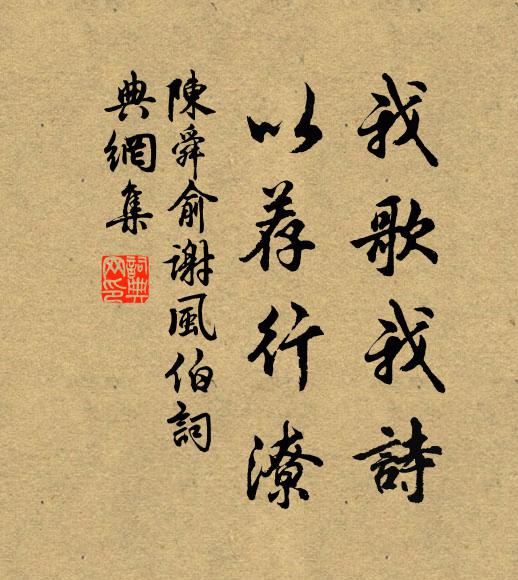 我歌我詩
以荐行潦
陳舜俞謝風伯詞
典網集
詞典網印